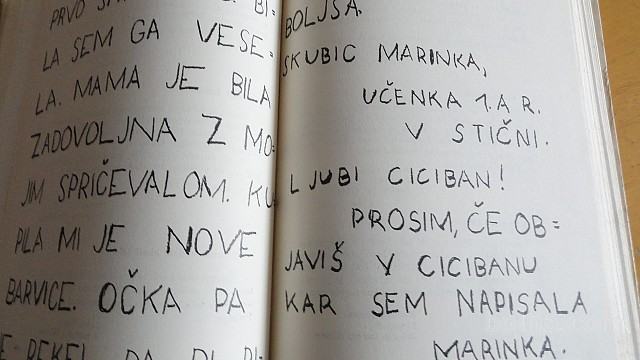 PRVO
LA SEM GA VESE=
LA. MAMA JE BILA
ZADOVOLJNA Z MO=
JIM SPRIČEVALOM. KU
PILA MI JE NOVE
BARVICE. OČKA PA
BOLJŠA.
SKUBIC MARINKA,
UČENKA 1. A R.
V STIČNI.
LJUBI CICIBAN!
PROSIM, ČE OB=
JAVIŠ V CICIBANU
KAR SEM NAPISALA
MARINKA.